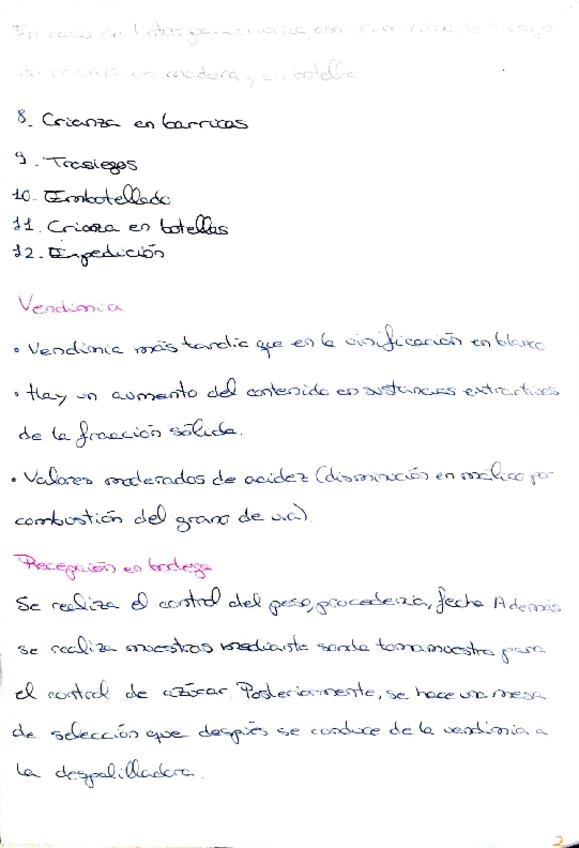 En caso de tintos para crianza, con
de crianza en madera y en botella
8. Crianza en barricas
9. Trasiegos
10. Embotellado
11. Crianza en botellas
12. Expedición
Vendimia
• Vendimia más tardía que en la vinificación en blanco
• Hay un aumento del contenido en sustancias extractivas
de la fracción sólida.
• Valores moderados de acidez (disminución en málico por
combustión del grano de uva)
Recepción en bodega
Se realiza el control del peso, procedencia, fecha Además
se realiza muestras mediante sonda tomamuestra para
el control de azúcar. Posteriormente, se hace una mesa
de selección que después se conduce de la vendimia a
la despalilladora.
2